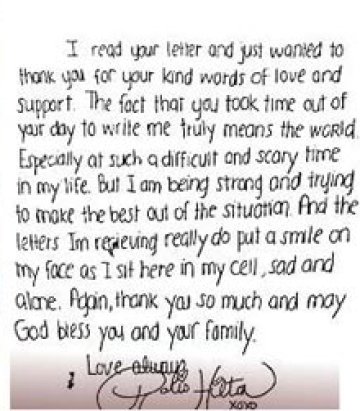 I read your letter and just wanted to
thank you for your kind words of love and
support. The fact that you took time out of
your day to write me truly means the world.
Especially at such a difficult and scary time
in my life. But I am being strong and trying
to make the best out of the situation. And the
letters Im recieving really do put a smile on
my face as I sit here in my cell, sad and
alone. Again, thank you so much and may
God bless you and your family.
Love always,
Paris Hilton
xoxo